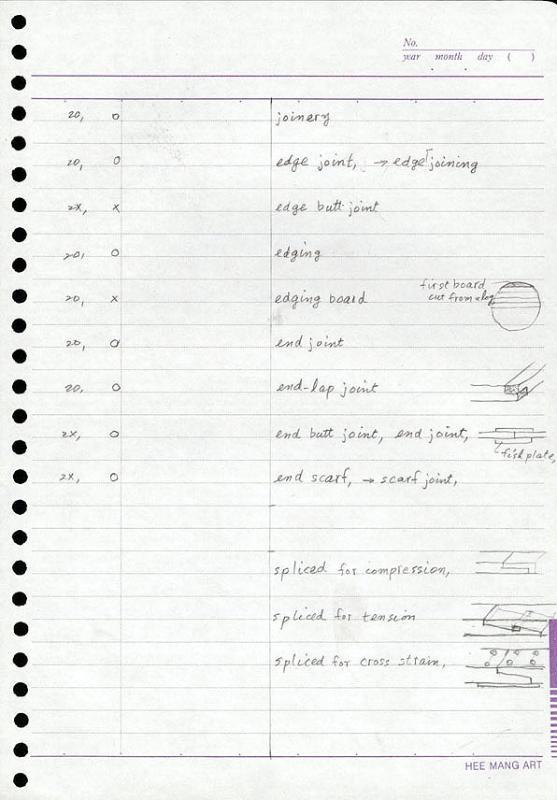 No.
year month day ( )
20, o joinery
20, o edge joint, → edge joining
2x, x edge butt joint
20, o edging
20, x edging board
first board
cut from a log
20, o end joint
20, o end-lap joint
2x, o end butt joint, end joint,
fishplate,
2x, o end scarf, → scarf joint,
spliced for compression,
spliced for tension
spliced for cross strain,
HEE MANG ART